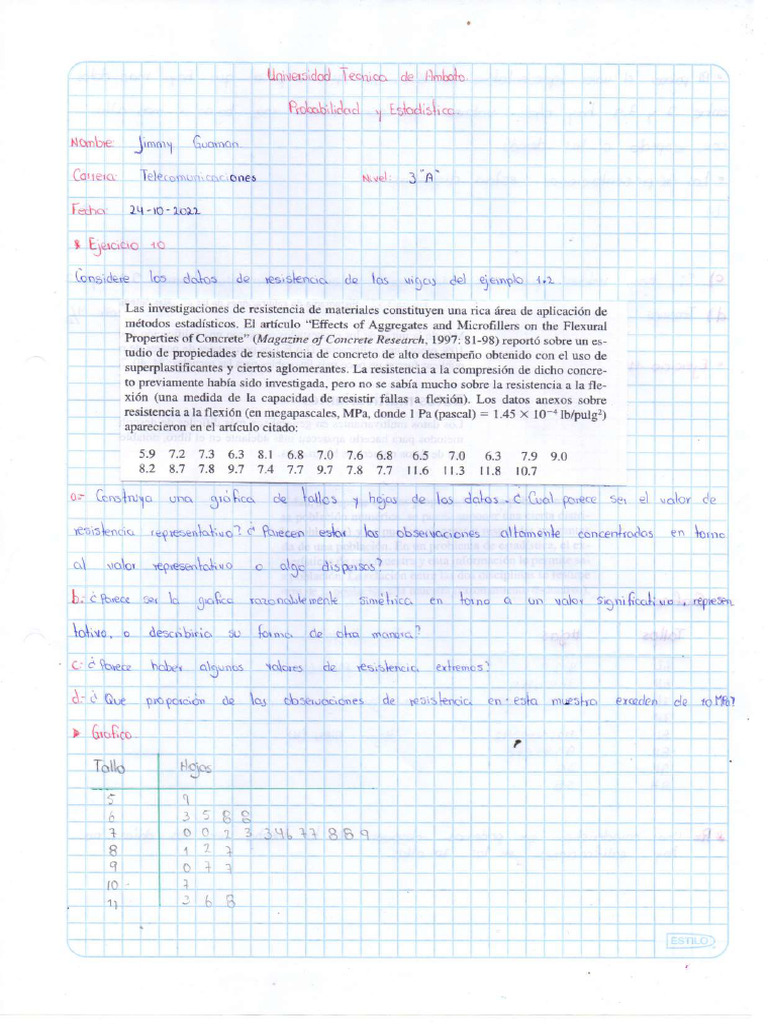 Universidad Tecnica de Ambato
Probabilidad y Estadistica
Nombre: Jimmy Guaman
Carrera: Telecomunicaciones Nivel: 3 "A"
Fecha: 24-10-2022
Ejercicio 10
Considere los datos de resistencia de las vigas del ejemplo 1.2
Las investigaciones de resistencia de materiales constituyen una rica área de aplicación de
métodos estadísticos. El artículo "Effects of Aggregates and Microfillers on the Flexural
Properties of Concrete" (Magazine of Concrete Research, 1997: 81-98) reportó sobre un es-
tudio de propiedades de resistencia de concreto de alto desempeño obtenido con el uso de
superplastificantes y ciertos aglomerantes. La resistencia a la compresión de dicho concre-
to previamente había sido investigada, pero no se sabía mucho sobre la resistencia a la fle-
xión (una medida de la capacidad de resistir fallas a flexión). Los datos anexos sobre
resistencia a la flexión (en megapascales, MPa, donde 1 Pa (pascal) = 1.45 × 10⁻⁴ lb/pulg²)
aparecieron en el artículo citado:
5.9 7.2 7.3 6.3 8.1 6.8 7.0 7.6 6.8 6.5 7.0 6.3 7.9 9.0
8.2 8.7 7.8 9.7 7.4 7.7 9.7 7.8 7.7 11.6 11.3 11.8 10.7
a.- Construya una gráfica de tallos y hojas de los datos. ¿Cual parece ser el valor de
resistencia representativo? ¿Parecen estar las observaciones altamente concentradas en torno
al valor representativo o algo dispersos?
b.- ¿Parece ser la grafica razonablemente simétrica en torno a un valor significativo, represen
tativo, o describiria su forma de otra manera?
c.- ¿Parece haber algunos valores de resistencia extremos?
d.- ¿Que proporción de las observaciones de resistencia en esta muestra exceden de 10 MPa?
Grafico
Tallo Hojas
5 9
6 3 5 8 8
7 0 0 2 3 3 4 6 7 7 8 8 9
8 1 2 7
9 0 7 7
10 7
11 3 6 8
ESTILO